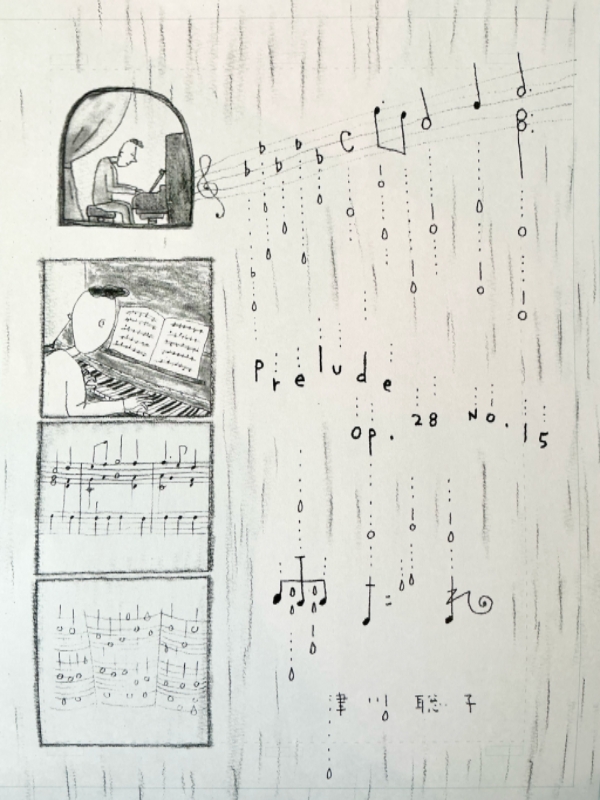 Prelude
op. 28 No. 15
津川聡子